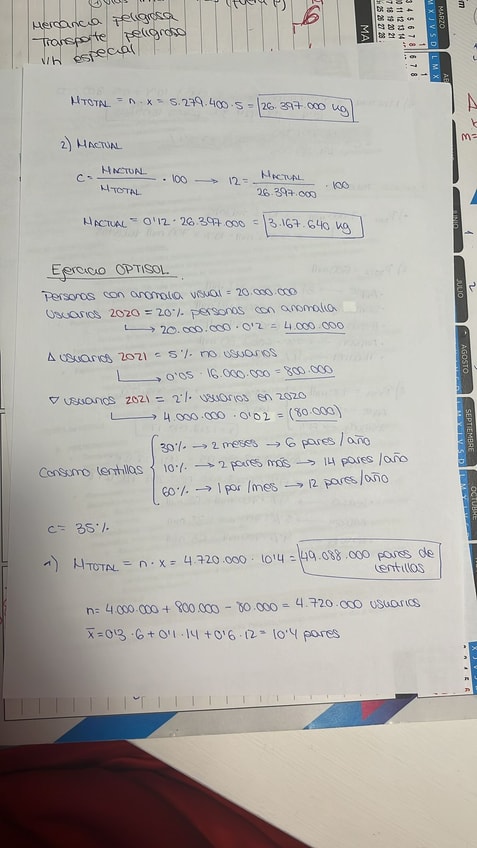 Mercancia peligrosa
Transporte peligroso
V/h especial
MTOTAL = n · x = 5.279.400 · 5 = 26.397.000 kg
2) MACTUAL
C = MACTUAL / MTOTAL · 100 → 12 = MACTUAL / 26.397.000 · 100
MACTUAL = 0'12 · 26.397.000 = 3.167.640 kg
Ejercicio OPTISOL
Personas con anomalia visual = 20.000.000
Usuarios 2020 = 20% personas con anomalia
→ 20.000.000 · 0'2 = 4.000.000
Δ usuarios 2021 = 5% no usuarios
→ 0'05 · 16.000.000 = 800.000
∇ usuarios 2021 = 2% usuarios en 2020
→ 4.000.000 · 0'02 = (80.000)
30% → 2 meses → 6 pares/año
Consumo lentillas { 10% → 2 pares más → 14 pares/año
60% → 1 par/mes → 12 pares/año
C = 35%
1) MTOTAL = n · x = 4.720.000 · 10'4 = 49.088.000 pares de
lentillas
n = 4.000.000 + 800.000 - 80.000 = 4.720.000 usuarios
x̄ = 0'3 · 6 + 0'1 · 14 + 0'6 · 12 = 10'4 pares
MARZO
MA
JUNIO
JULIO
AGOSTO
SEPTIEMBRE
OCTUBRE